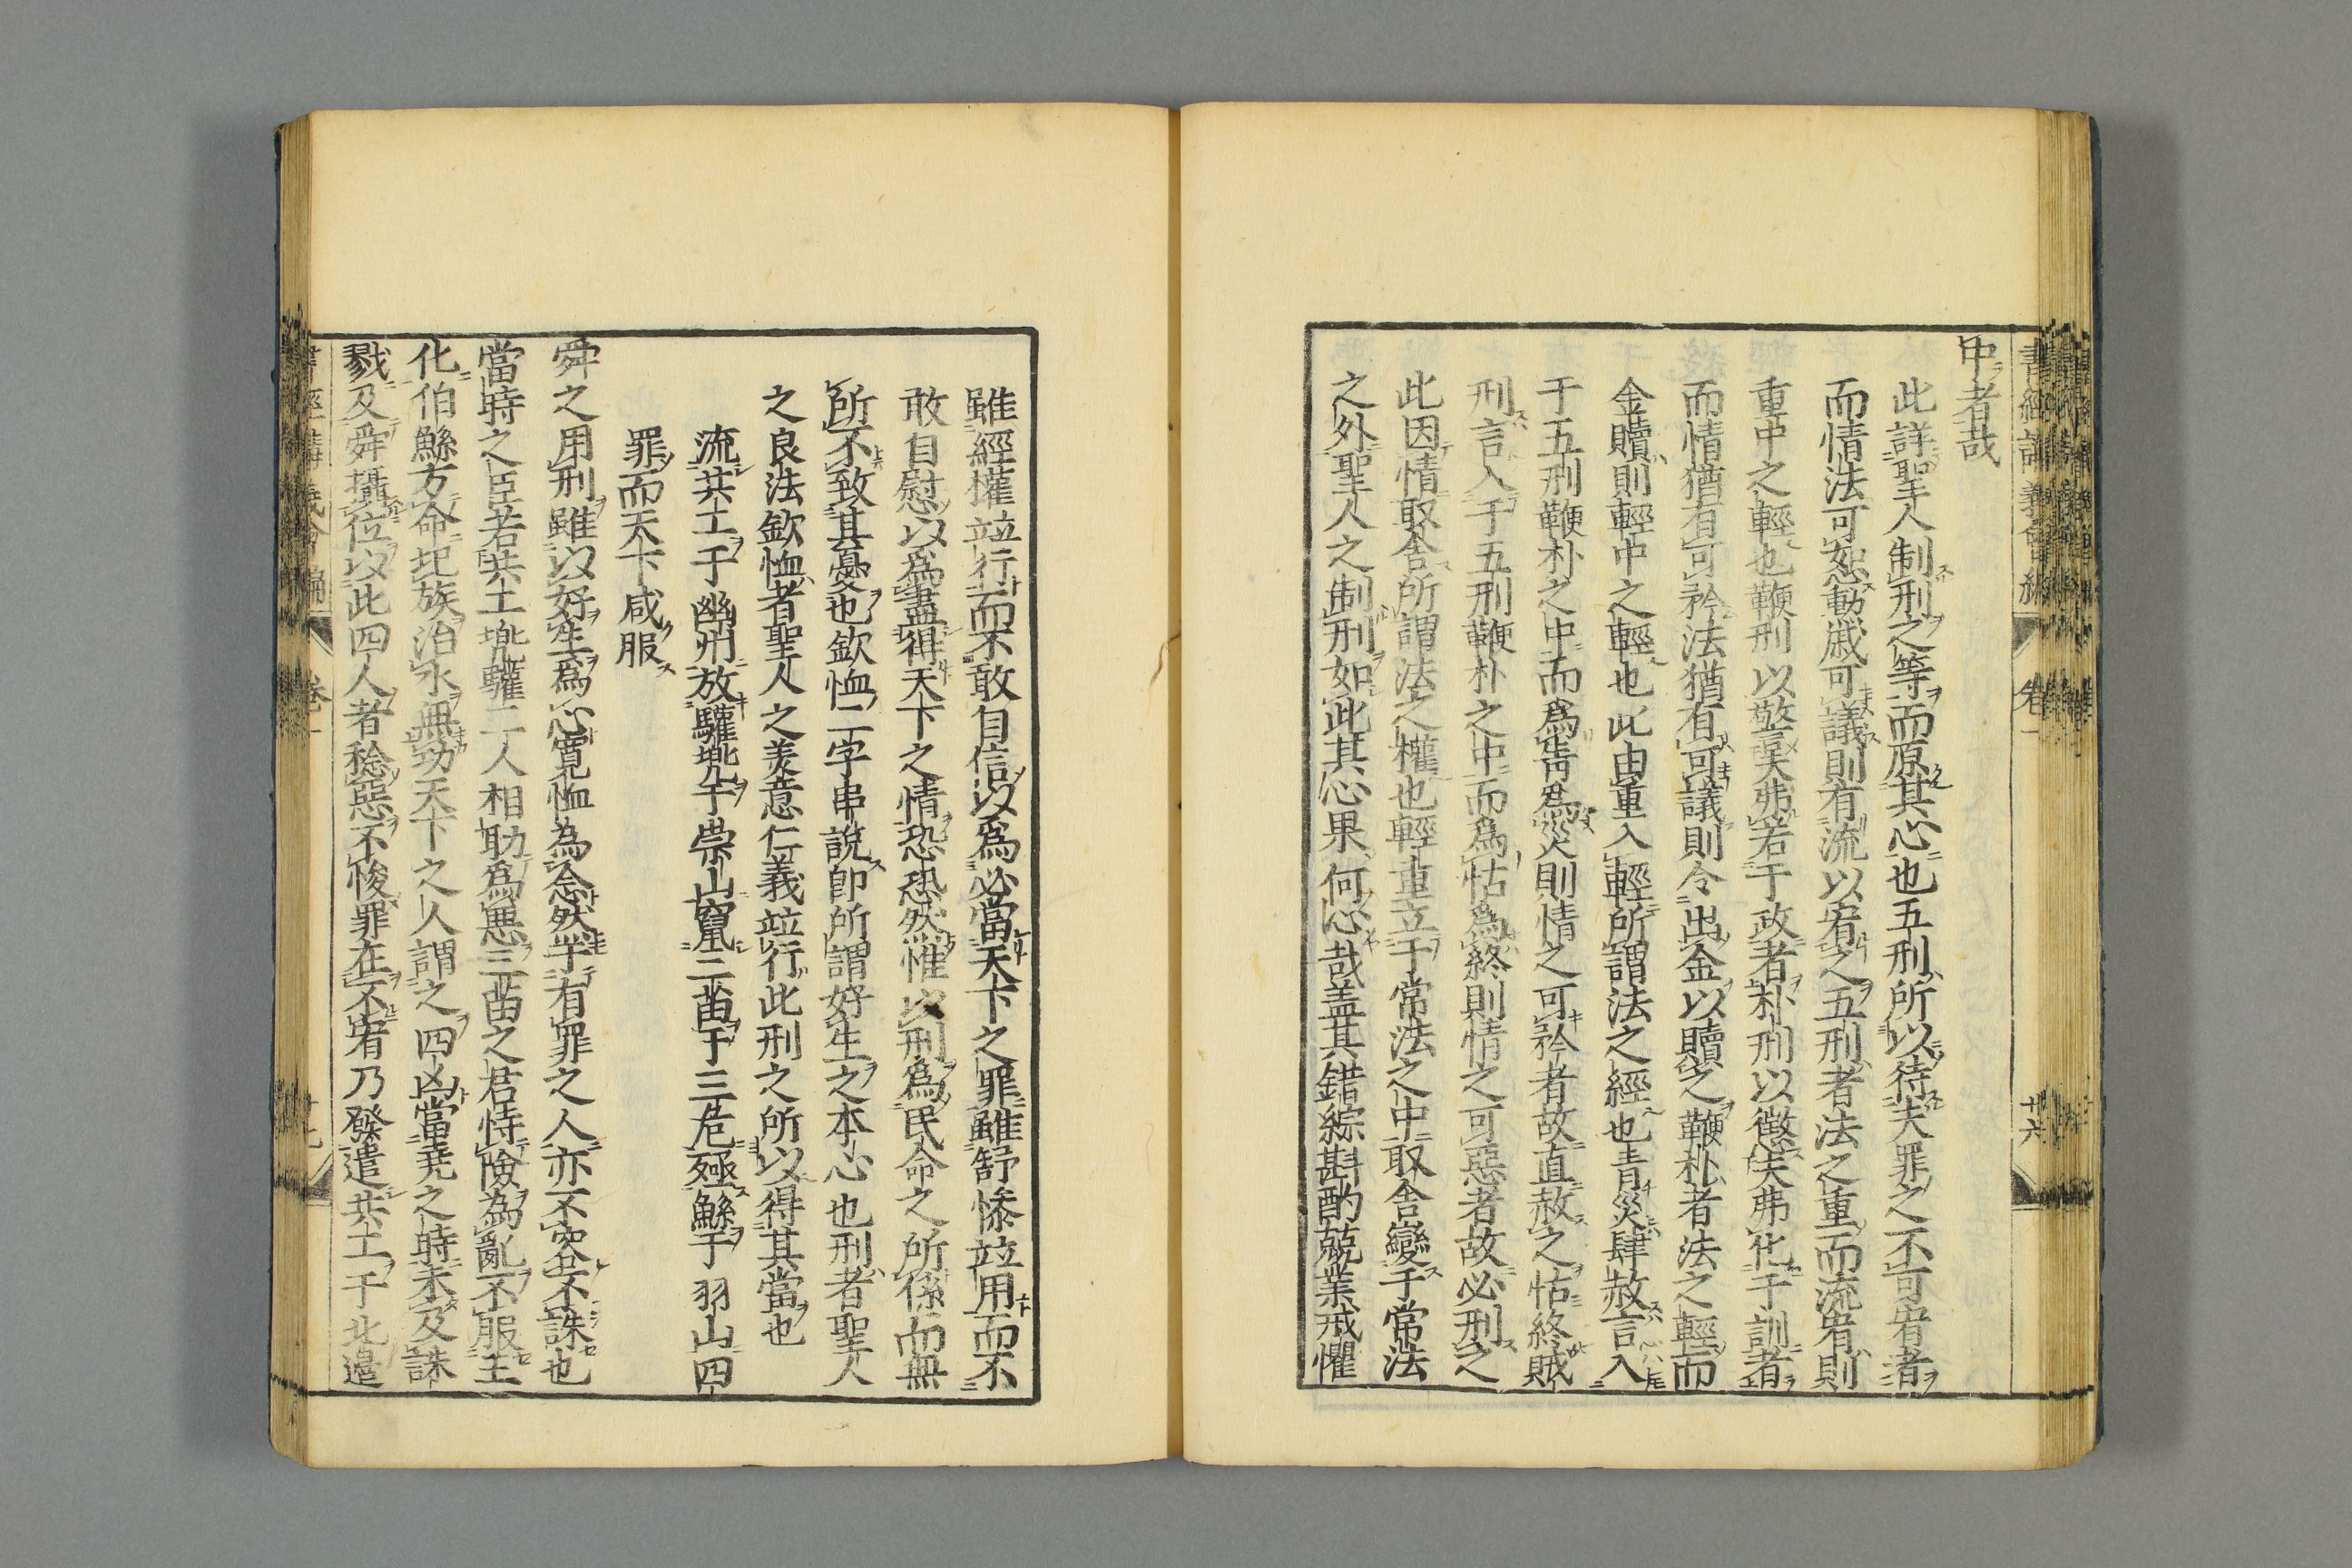 書經講義會編
卷一
十六
中者哉
此詳聖人制刑之等而原其心也五刑所以待夫罪之不可宥者
而情法可恕勳戚可議則有流以宥之五刑者法之重而流宥則
重中之輕也鞭刑以警夫弗若于政者朴刑以懲夫弗化于訓者
而情猶有可矜法猶有可議則令出金以贖之鞭朴者法之輕而
金贖則輕中之輕也此由重入輕所謂法之經也眚災肆赦言入
于五刑鞭朴之中而爲眚爲災則情之可矜者故直赦之怙終賊
刑言入于五刑鞭朴之中而爲怙爲終則情之可惡者故必刑之
此因情取舍所謂法之權也輕重立于常法之中取舍變于常法
之外聖人之制刑如此其心果何心哉盖其錯綜斟酌兢業戒懼
雖經權竝行而不敢自信以爲必當天下之罪雖舒慘竝用而不
敢自慰以爲盡得天下之情恐恐然惟以刑爲民命之所係而無
所不致其憂也欽恤二字串說卽所謂好生之本心也刑者聖人
之良法欽恤者聖人之美意仁義竝行此刑之所以得其當也
流共工于幽州放驩兜于崇山竄三苗于三危殛鯀于羽山四
罪而天下咸服
舜之用刑雖以好生爲心寬恤為念然于有罪之人亦不容不誅也
當時之臣若共工兜驩二人相助爲惡三苗之君恃險為亂不服王
化伯鯀方命圯族治水無功天下之人謂之四凶當堯之時未及誅
戮及舜攝位以此四人者稔惡不悛罪在不宥乃發遣共工于北邉
書經講義會編
卷一
十七